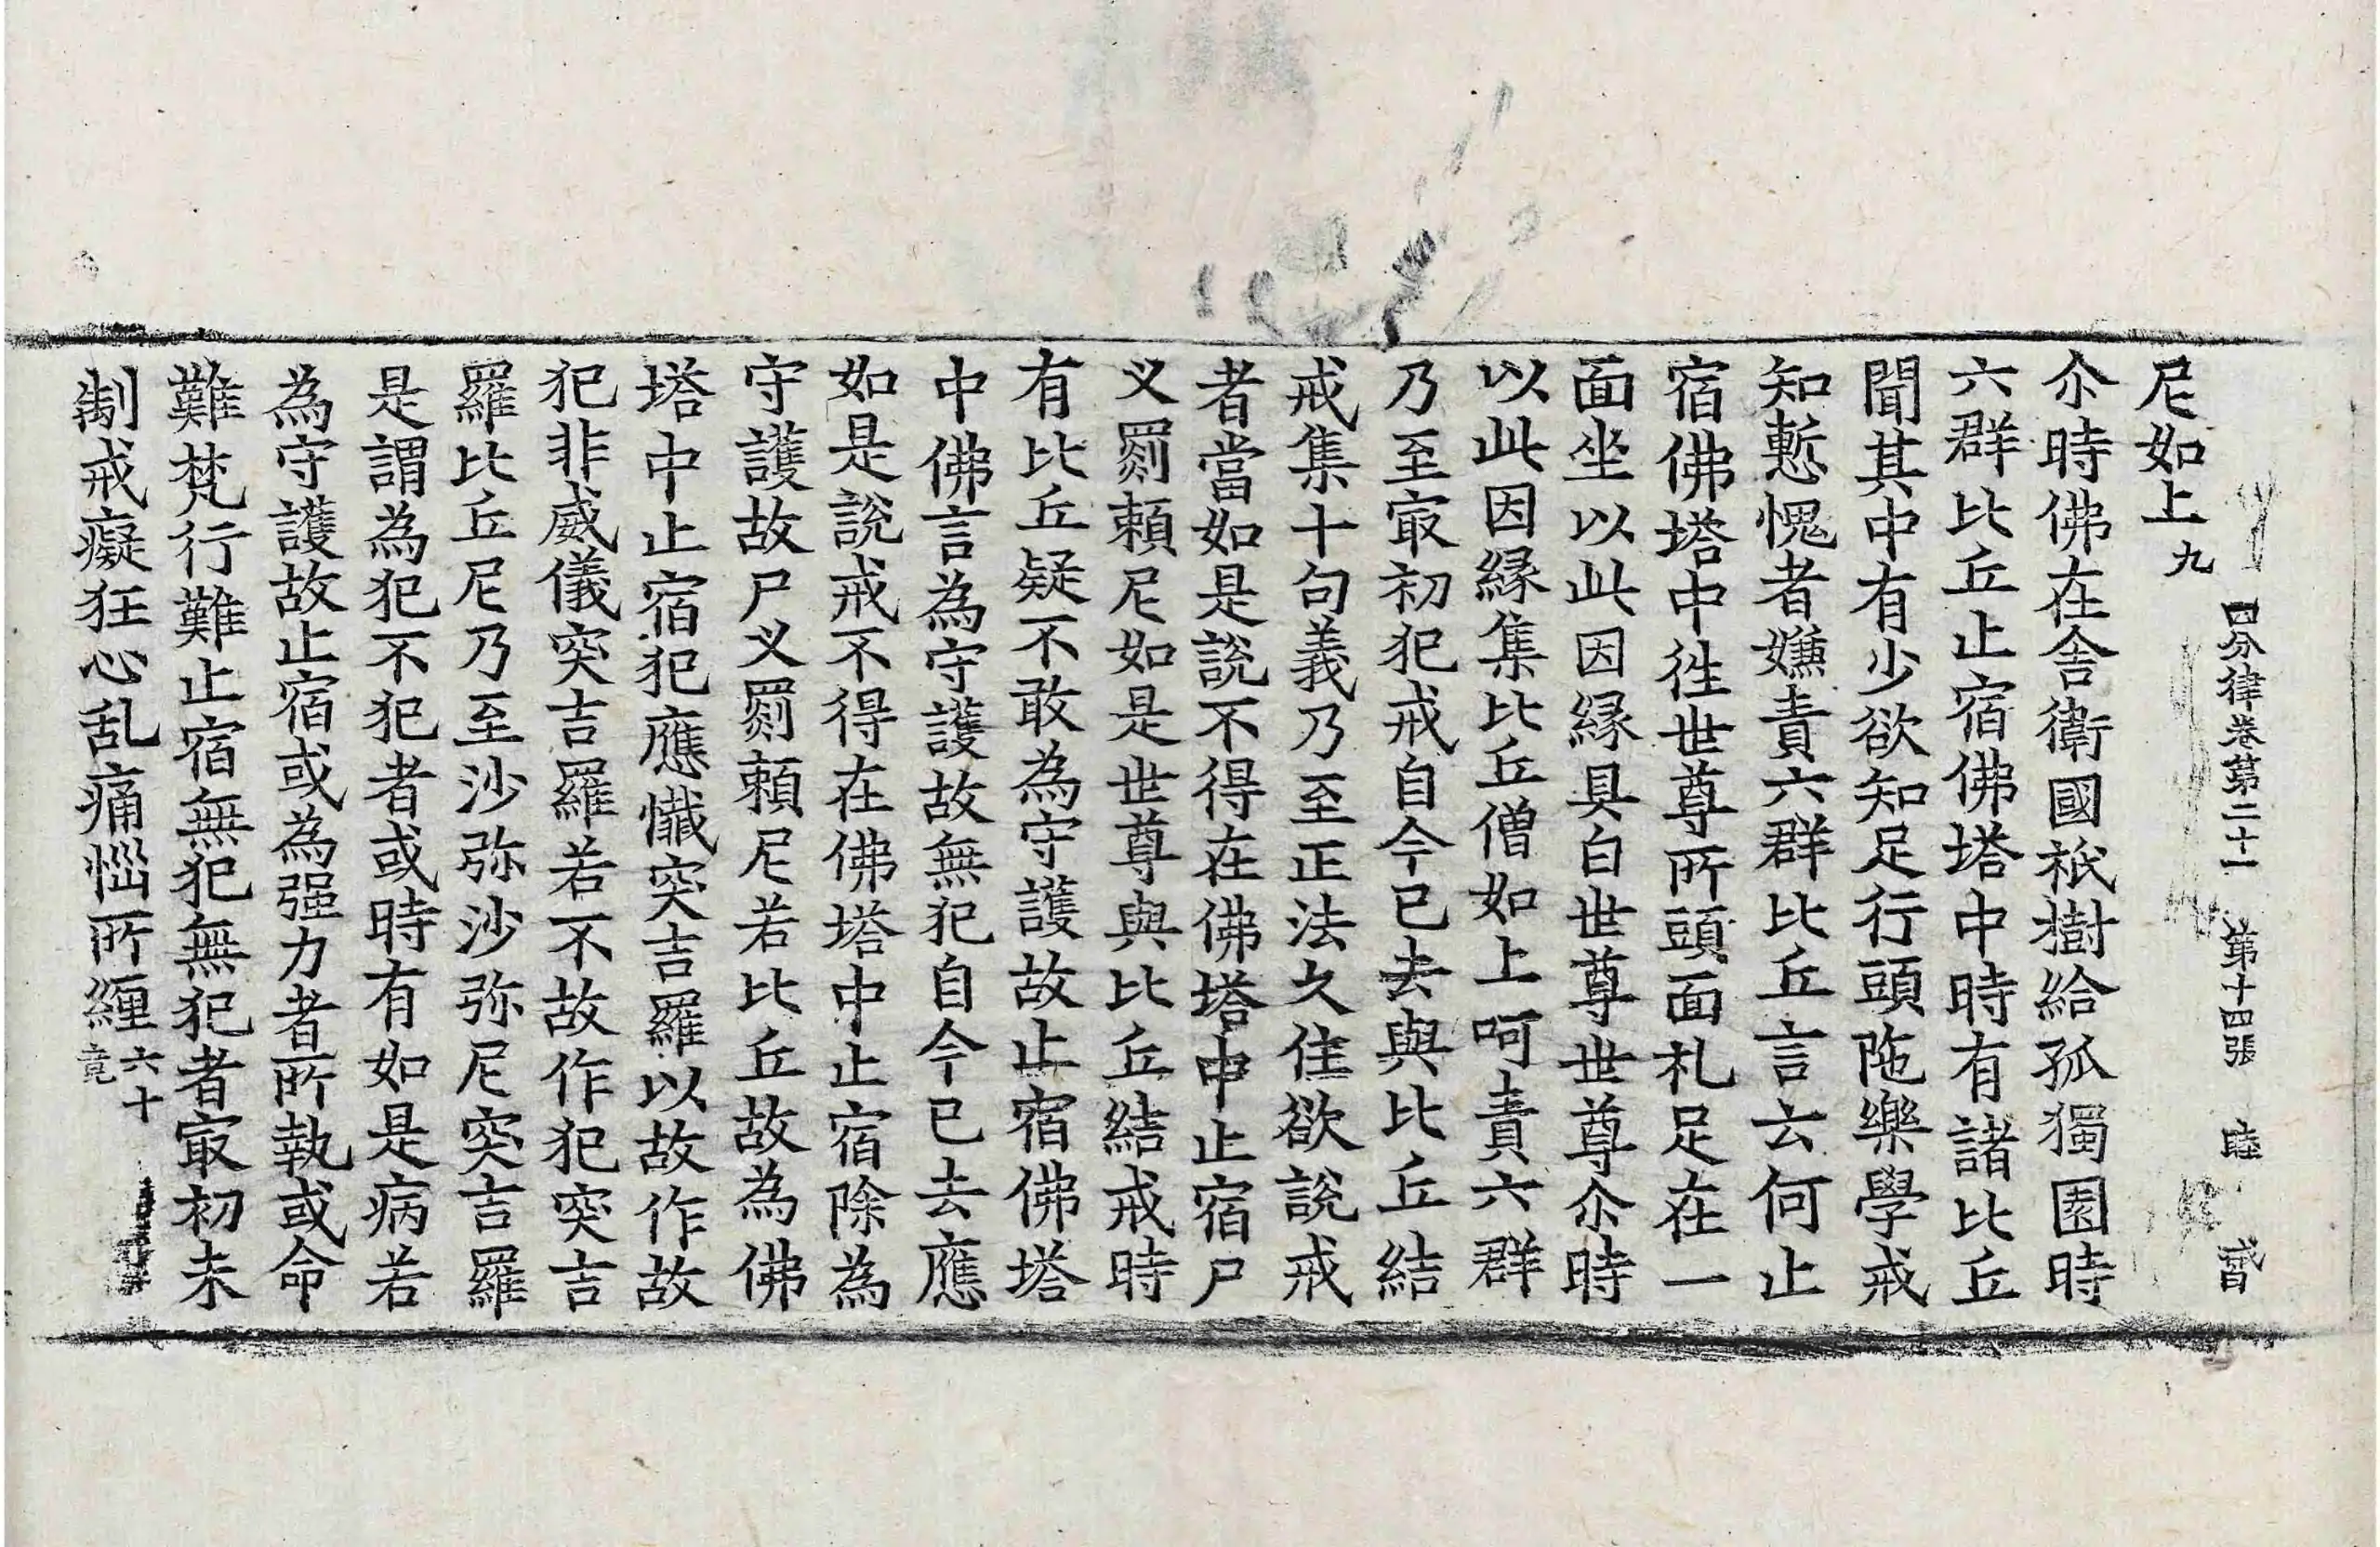 四分律卷第二十一 第十四張 睦 貳
尼如上九
尒時佛在舍衛國祇樹給孤獨園時
六群比丘止宿佛塔中時有諸比丘
聞其中有少欲知足行頭陁樂學戒
知慙愧者嫌責六群比丘言云何止
宿佛塔中徃世尊所頭面礼足在一
面坐以此因縁具白世尊世尊尒時
以此因縁集比丘僧如上呵責六群
乃至冣初犯戒自今已去與比丘結
戒集十句義乃至正法久住欲說戒
者當如是說不得在佛塔中止宿尸
叉罽頼尼如是世尊與比丘結戒時
有比丘疑不敢為守護故止宿佛塔
中佛言為守護故無犯自今已去應
如是說戒不得在佛塔中止宿除為
守護故尸叉罽頼尼若比丘故為佛
塔中止宿犯應懺突吉羅以故作故
犯非威儀突吉羅若不故作犯突吉
羅比丘尼乃至沙弥沙弥尼突吉羅
是謂為犯不犯者或時有如是病若
為守護故止宿或為强力者所執或命
難梵行難止宿無犯無犯者冣初未
制戒癡狂心乱痛惱所纏六十竟